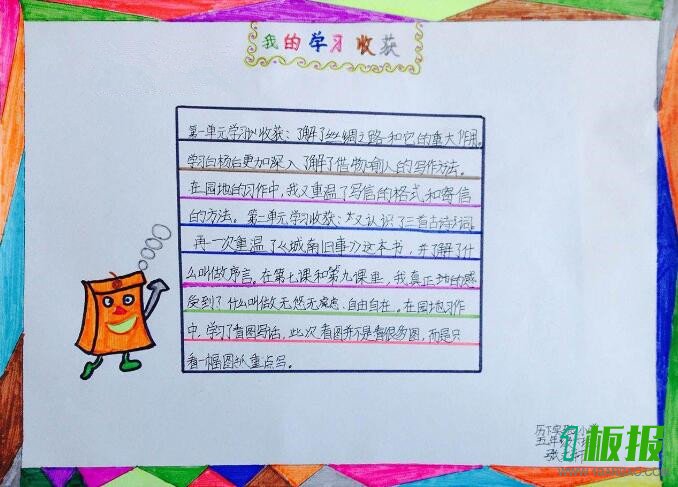 我的学习收获
第一单元学习收获：了解了丝绸之路和它的重大作用。
学习白杨台更加深入了解了借物喻人的写作方法。
在园地的习作中，我又重温了写信的格式和寄信
的方法。第二单元学习收获：又认识了三首古诗词。
再一次重温了《城南旧事》这本书，并了解了什
么叫做序言。在第七课和第九课里，我真正地的感
受到了什么叫做无忧无虑，自由自在。在园地习作
中，学习了看图写话，此次看图并不是看很多图，而是只
看一幅图从重点写。
历下实验小学
五年级
张
板报